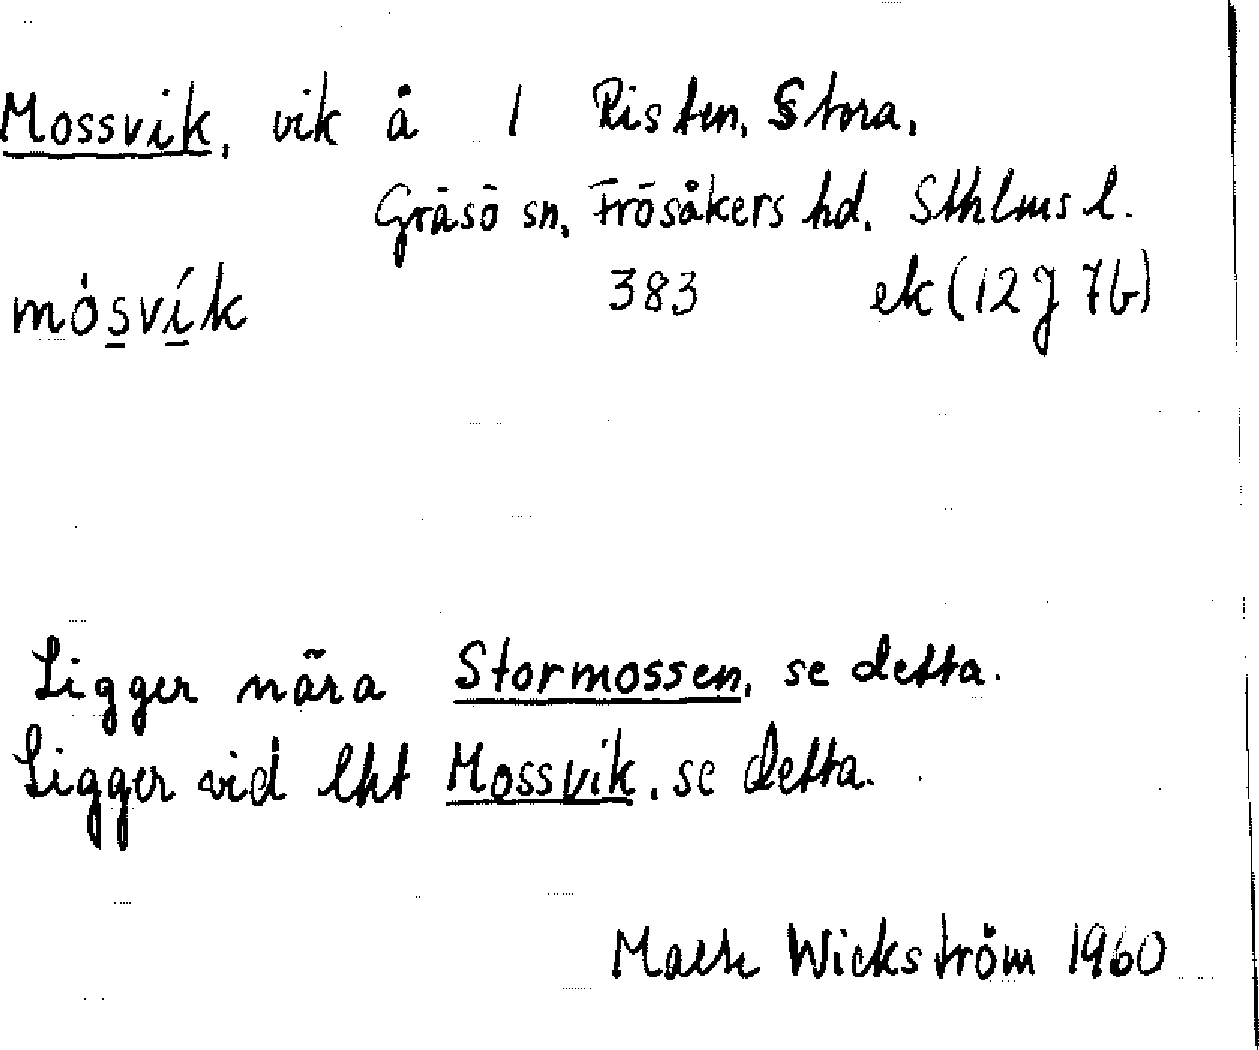 Mossvik, vik å 1 Risten, Stora,
Gräsö sn, Frösåkers hd. Sthlms l.
mòsvík 383 ek (12J 7b)
Ligger nära Stormossen, se detta.
Ligger vid lht Mossvik, se detta.
Wickström 1960